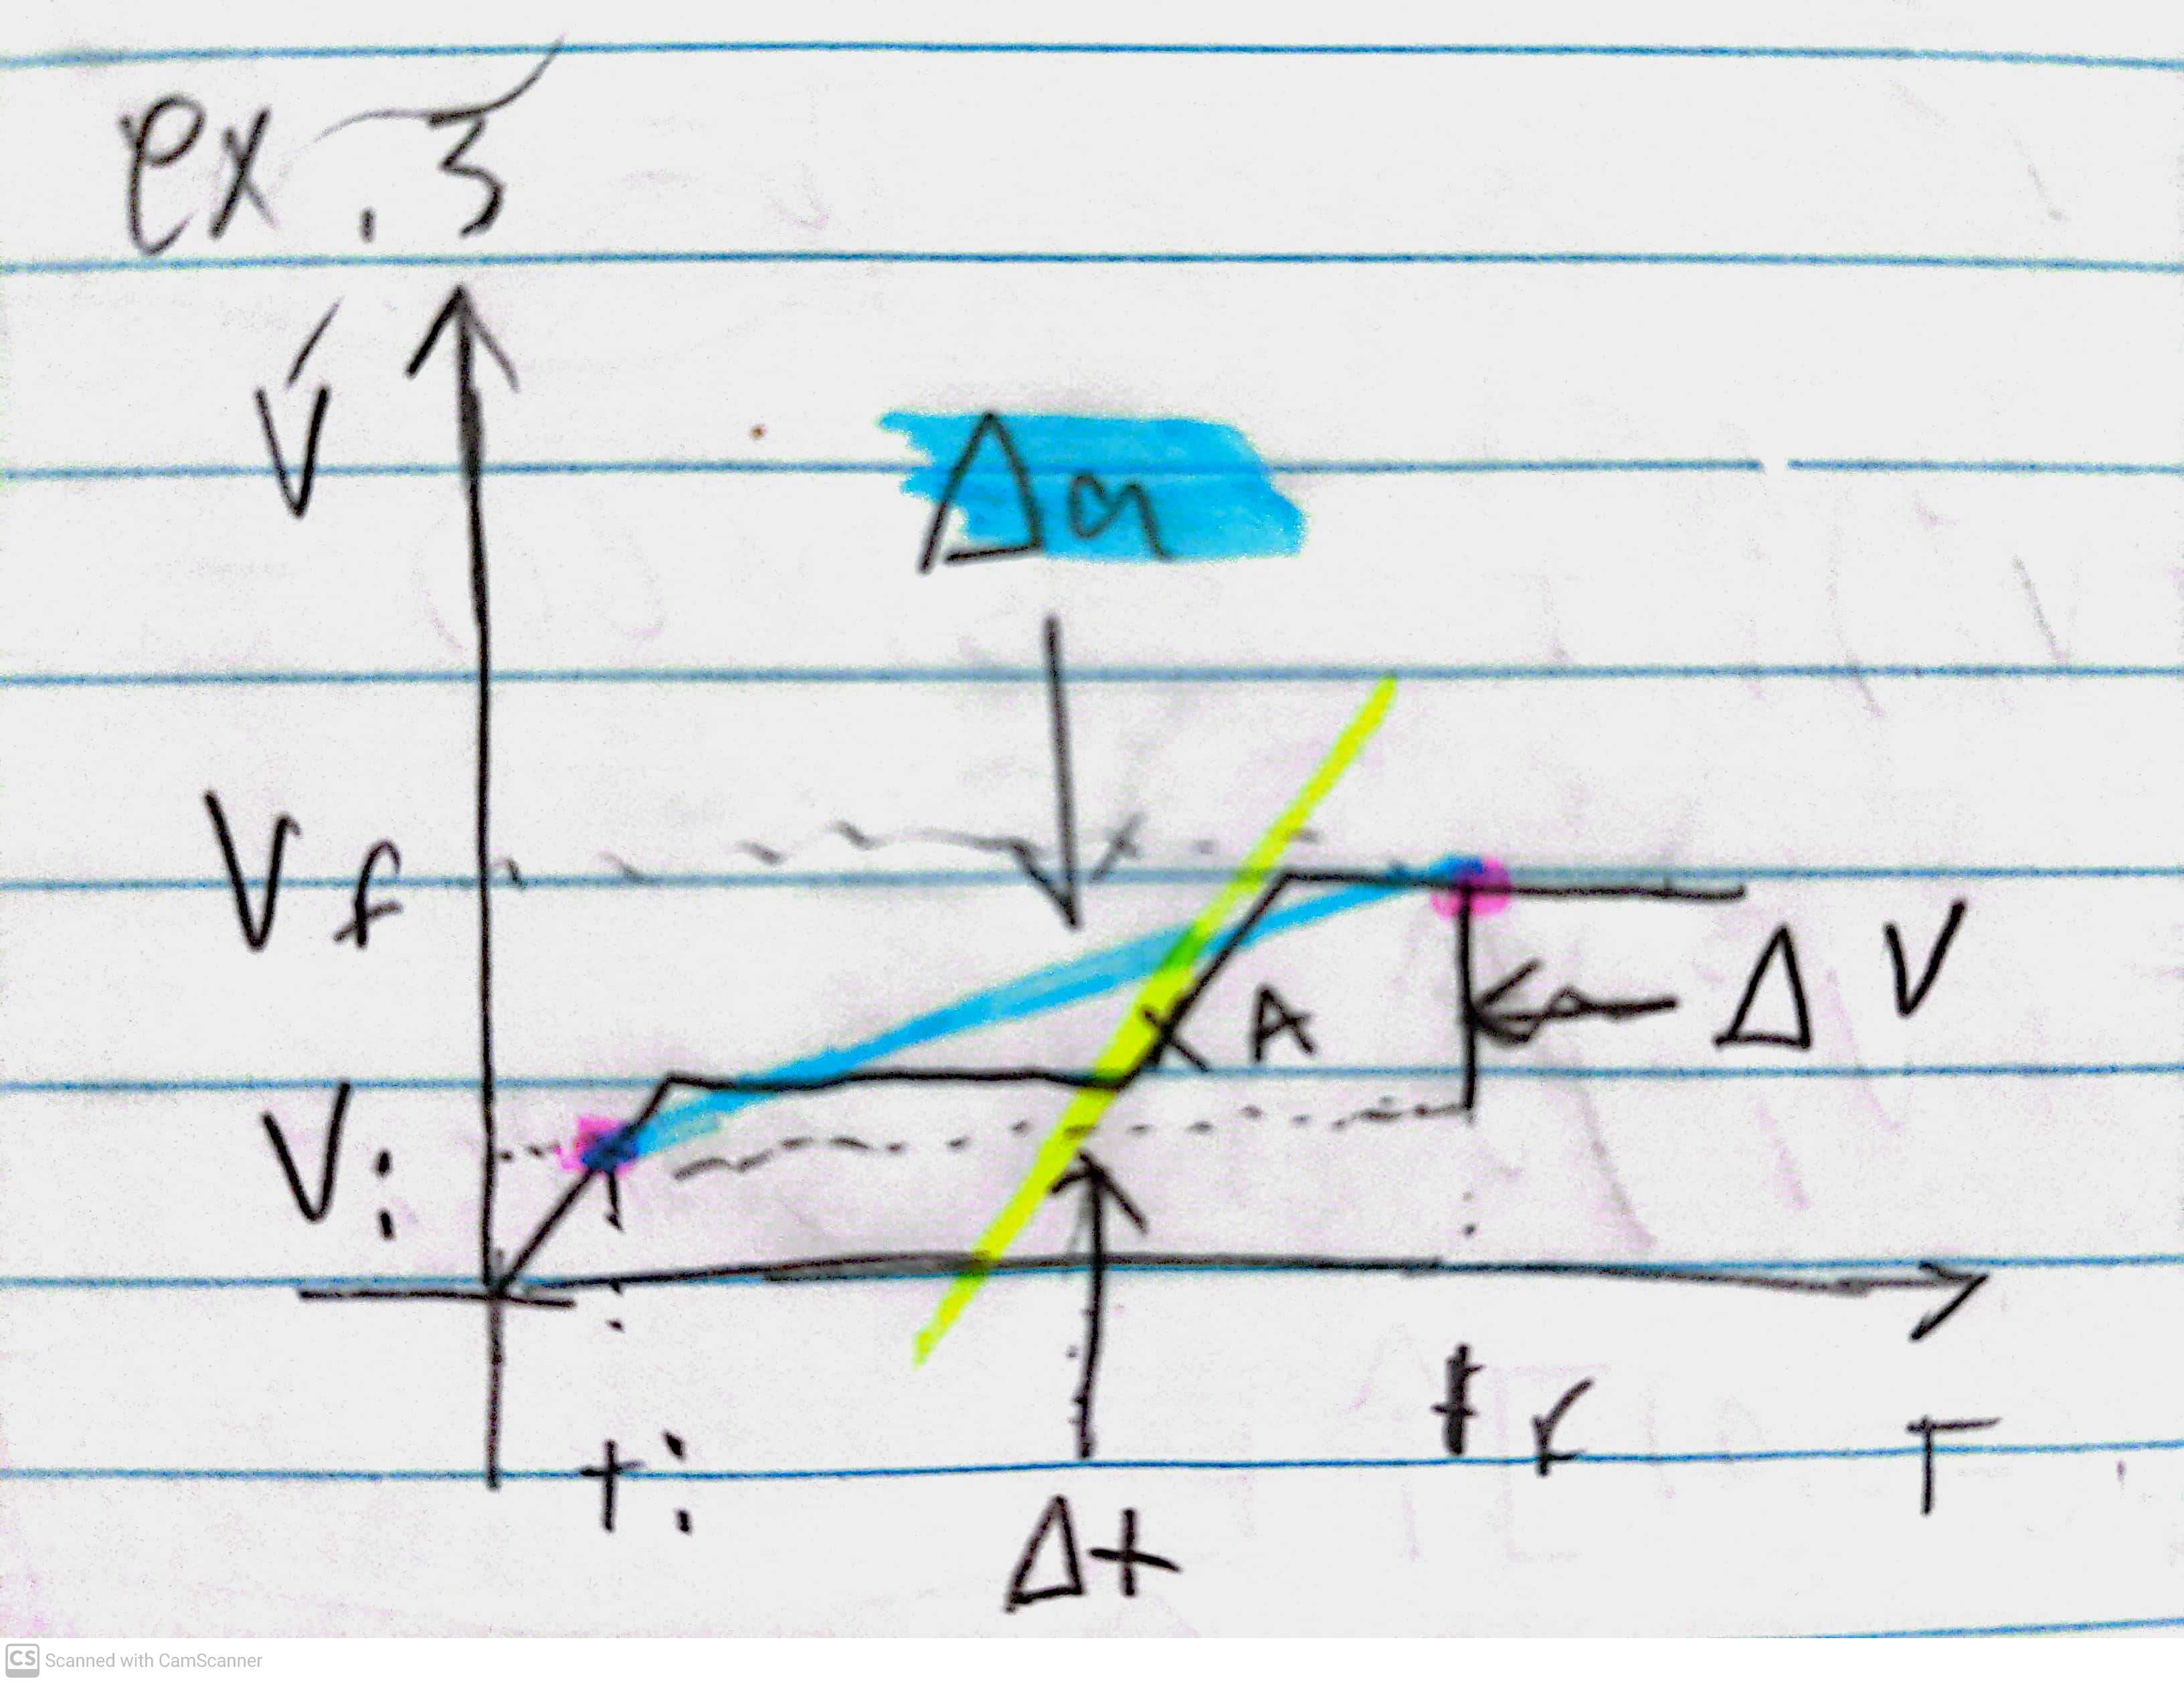 ex. 3
V
Δa
Vf
A
ΔV
Vi
ti
tf
T
Δt
CS Scanned with CamScanner